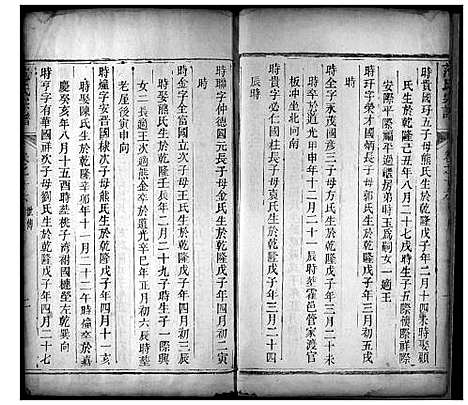 時貴國玗五子母熊氏生於乾隆戊子年二月十四未時娶顧
氏生於乾隆己丑年八月二十七戌時生子五際 際祥際
安際平際 房弟時玉爲嗣女一適王
時玗字榮才國磷三子母 氏生於乾隆戊子年三月初五戌
時
時金字永茂國彥三子母方氏生於乾隆戊子年三月二十未
時卒於道光甲申年十二月二十一辰時葬霍邑管家渡官
板冲坐北向南
時貴字 國 長子母袁氏生於乾隆戊子年三月二十四
辰時
時聯字仲德國元長子母金氏生於乾隆戊子年四月初二寅
時
時金字全富國立次子母王氏生於乾隆戊子年四月初三辰
時娶 氏生於乾隆壬辰年二月二十九子時生子一際興
女二長適王次適熊金卒於道光辛巳年正月初六辰時葬
老屋後寅申向
時 字安晋國棣次子母熊氏生於乾隆戊子年四月初十辰
時娶陳氏生於乾隆辛卯年十一月二十二午時 卒於嘉
慶癸亥年八月十五酉時葬桃子灣祔國槤塋左乾巽向
時亨字有華國祥次子母劉氏生於乾隆戊子年四月二十七